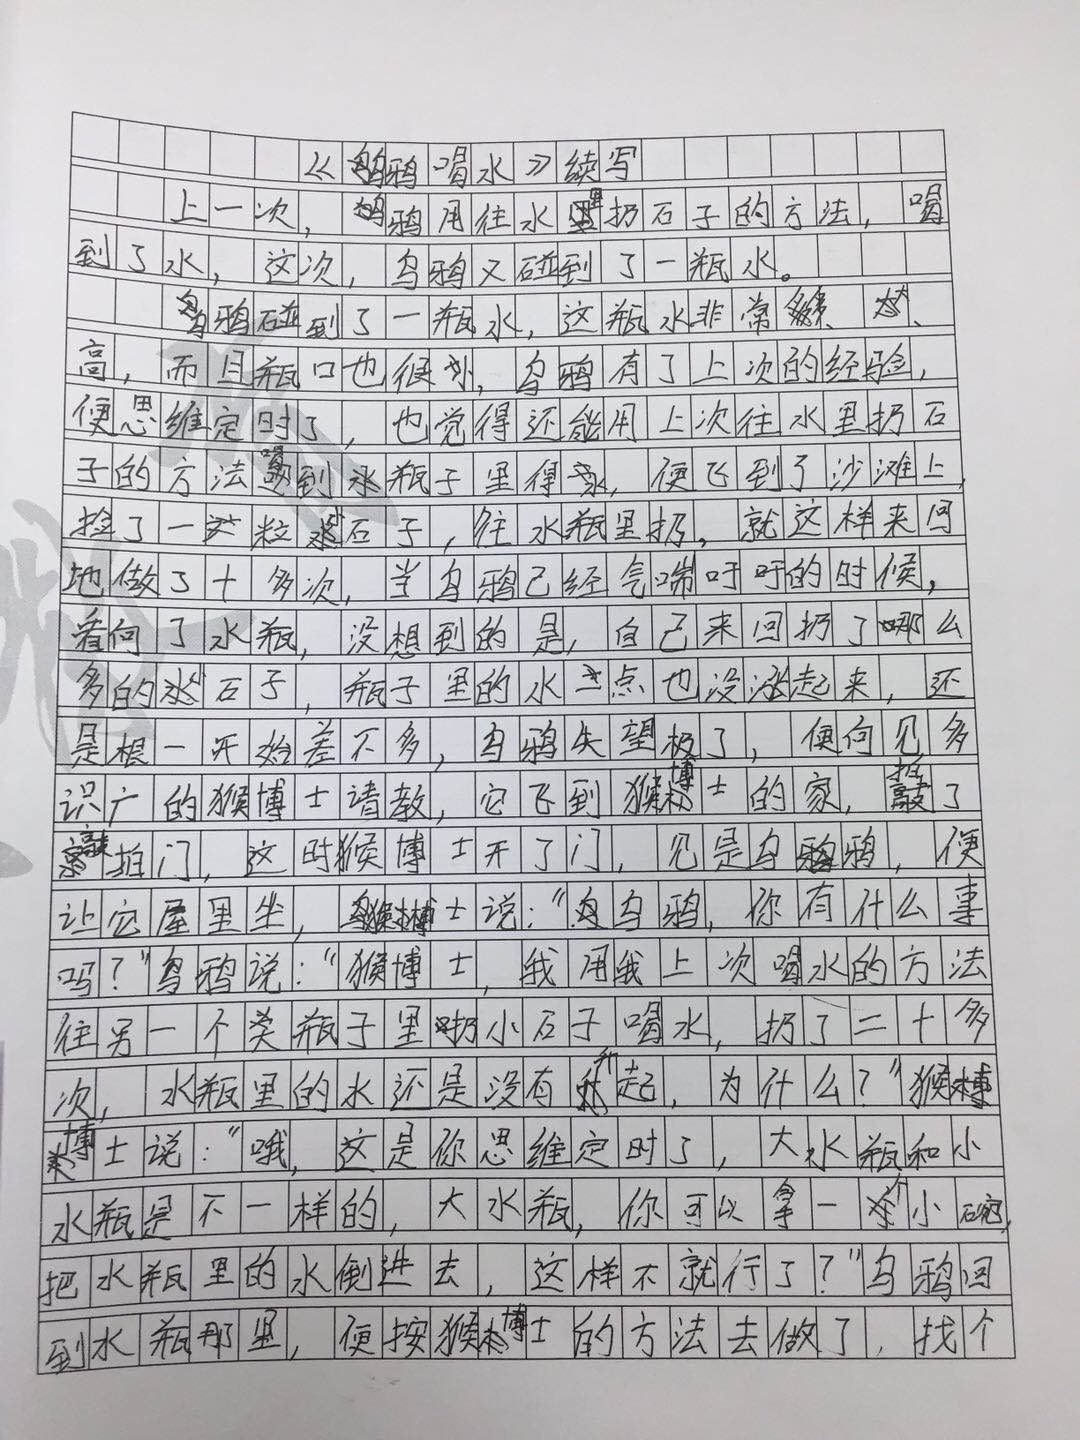 《乌鸦喝水》续写
上一次，乌鸦用往水里扔石子的方法，喝
到了水，这次，乌鸦又碰到了一瓶水。
乌鸦碰到了一瓶水，这瓶水非常多、大、
高，而且瓶口也很小，乌鸦有了上次的经验，
便思维定时了，也觉得还能用上次往水里扔石
子的方法喝到水瓶子里得水，便飞到了沙滩上，
捡了一粒石子，往水瓶里扔。就这样来回
地做了十多次，当乌鸦已经气喘吁吁的时候，
看向了水瓶，没想到的是，自己来回扔了哪么
多的石子，瓶子里的水一点也没涨起来，还
是根一开始差不多，乌鸦失望极了，便向见多
识广的猴博士请教，它飞到猴博士的家，敲了
敲门，这时猴博士开了门，见是乌鸦，便
让它屋里坐，猴博士说：“乌鸦，你有什么事
吗？”乌鸦说：“猴博士，我用我上次喝水的方法
往另一个类瓶子里扔小石子喝水，扔了二十多
次，水瓶里的水还是没有升起，为什么？”猴
博士说：“哦，这是你思维定时了，大水瓶和小
水瓶是不一样的，大水瓶，你可以拿一个小碗，
把水瓶里的水倒进去，这样不就行了？”乌鸦回
到水瓶那里，便按猴博士的方法去做了，找个